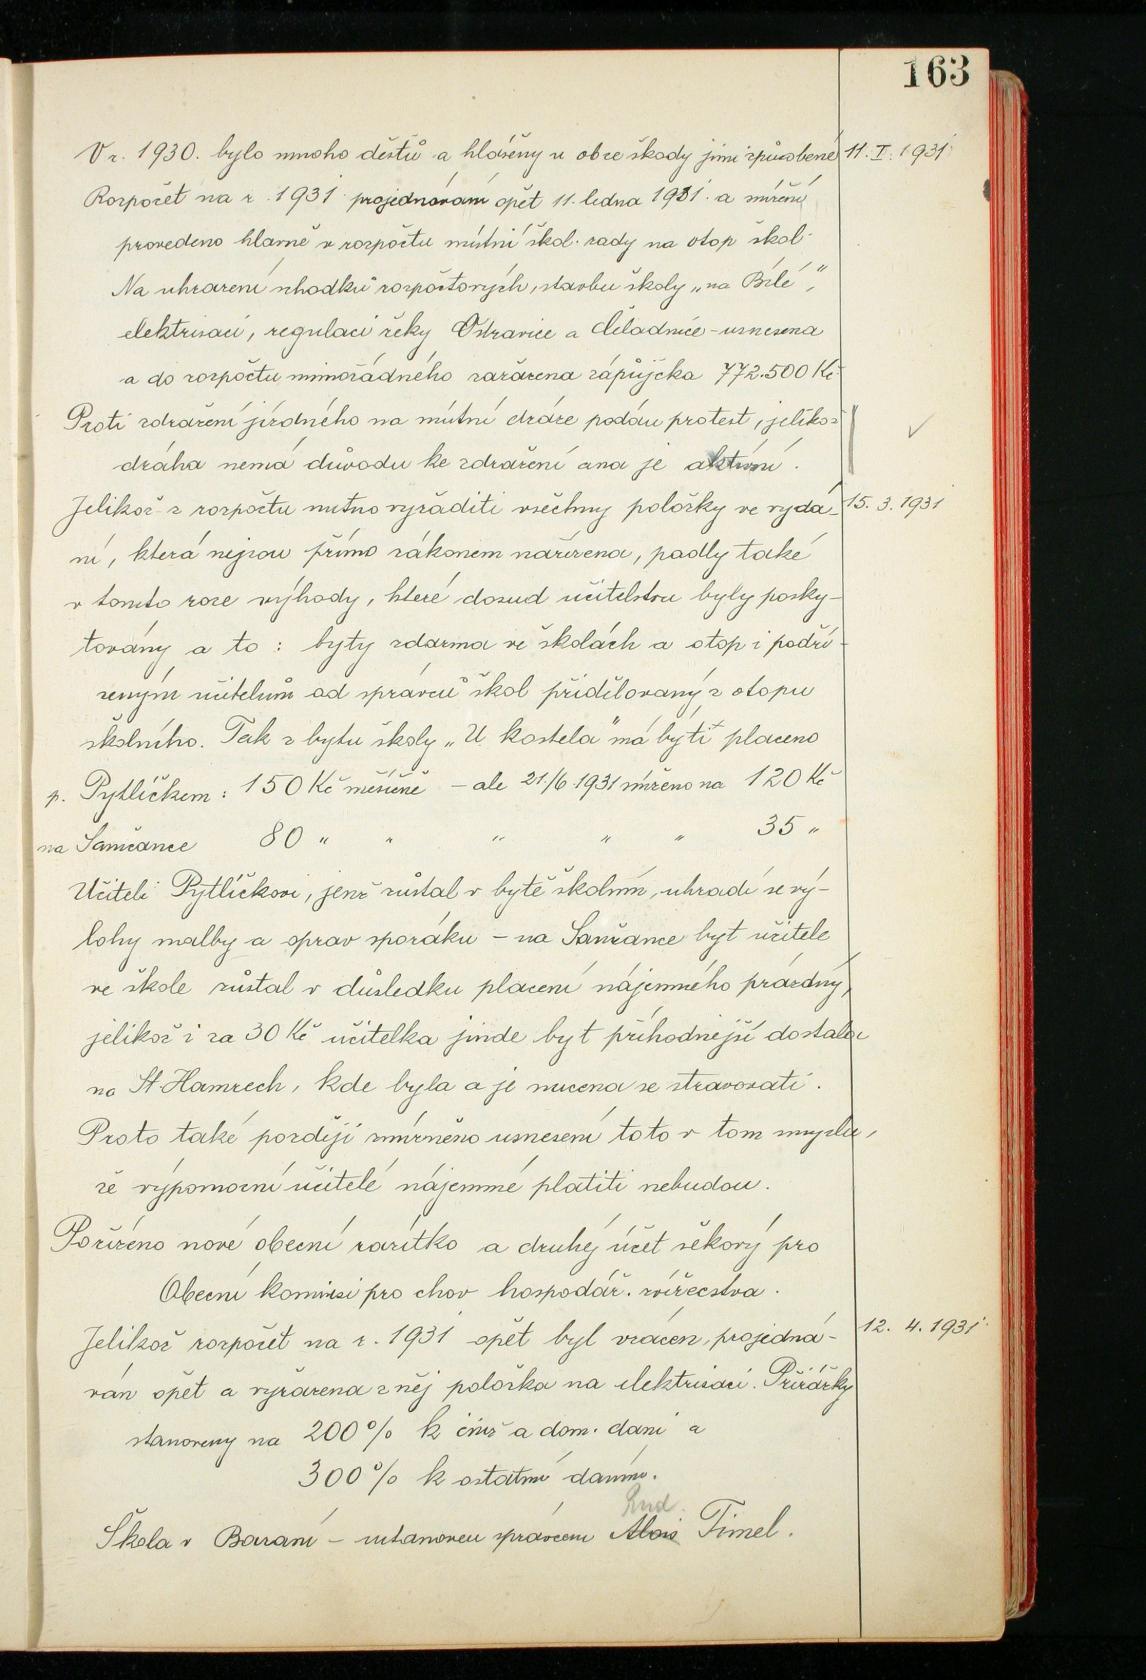 163
V r. 1930. bylo mnoho dešťů a hlášeny u obce škody jimi způsobené 11. I. 1931
Rozpočet na r. 1931 projednáván opět 11. ledna 1931. a snížení
provedeno hlavně v rozpočtu místní škol. rady na otop škol.
Na uhrazení schodků rozpočtových, stavbu školy „na Bílé",
elektrisaci, regulaci řeky Ostravice a Čeladnice - usnesena
a do rozpočtu mimořádného zařazena zápůjčka 772.500 Kč
Proti zdražení jízdného na místní dráze podán protest, jelikož
dráha nemá důvodu ke zdražení ana je aktivní.
Jelikož z rozpočtu nutno vyřaditi všechny položky ve vydá- 15. 3. 1931
ní, která nejsou přímo zákonem nařízena, padly také
v tomto roce výhody, které dosud učitelstvu byly posky-
továny a to : byty zdarma ve školách a otop i podří-
zeným učitelům od správců škol přidělovaný z otopu
školního. Tak z bytu školy „U kostela" má býti placeno
p. Pytlíčkem : 150 Kč měsíčně - ale 21./6 1931 sníženo na 120 Kč
na Samčance 80 " " " " " 35 "
Učiteli Pytlíčkovi, jenž zůstal v bytě školním, uhradí se vý-
lohy malby a oprav sporáku - na Samčance byt učitele
ve škole zůstal v důsledku placení nájemného prázdný,
jelikož i za 30 Kč učitelka jinde byt příhodnější dostala
na St. Hamrech, kde byla a je nucena se stravovati.
Proto také později zmírněno usnesení toto v tom smyslu,
že výpomocní učitelé nájemné platiti nebudou.
Pořízeno nové obecní razítko a druhý účet šekový pro
Obecní komisi pro chov hospodář. zvířectva.
Jelikož rozpočet na r. 1931 opět byl vrácen, projedná- 12. 4. 1931
ván opět a vyřazena z něj položka na elektrisaci. Přirážky
stanoveny na 200% k činž a dom. dani a
300% k ostatní daním.
Rud.
Škola v Baraní - ustanoven správcem Alois Timel.